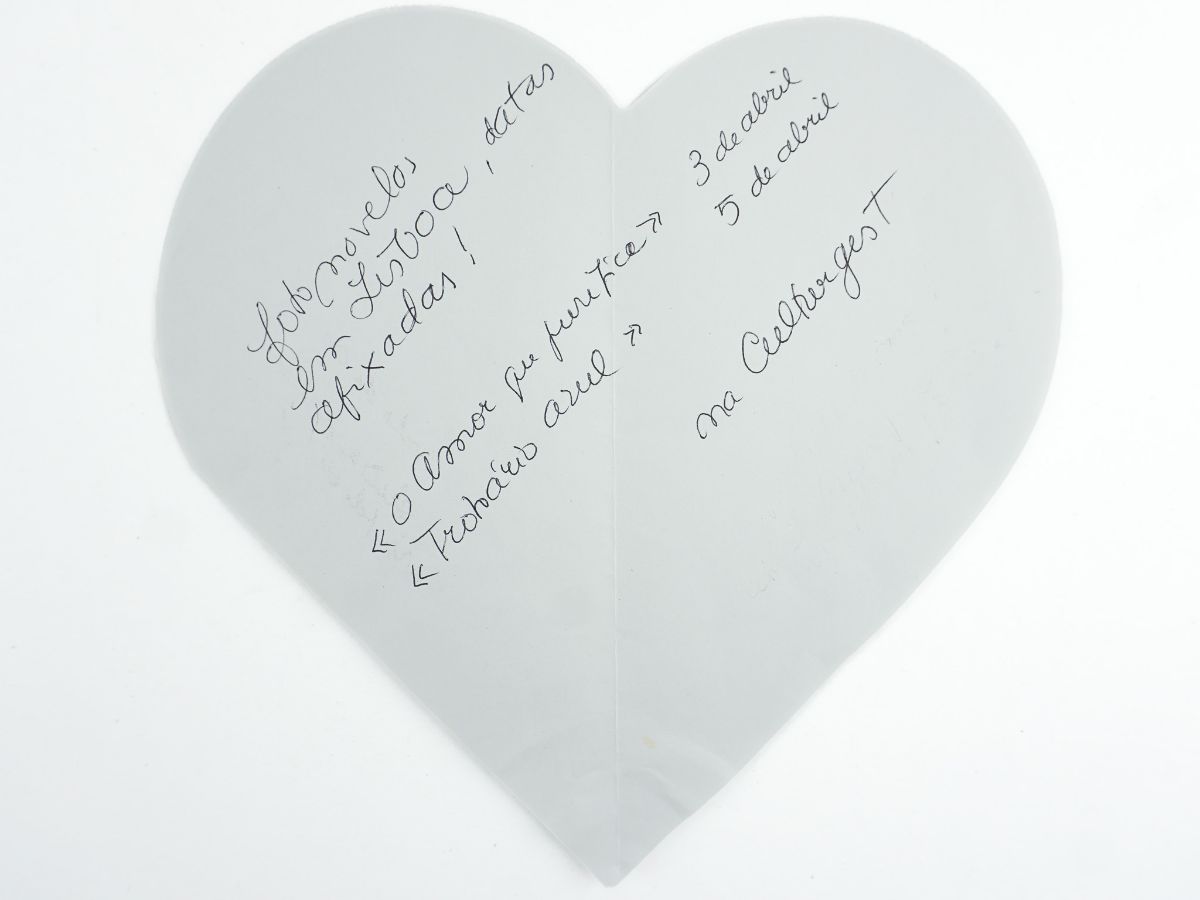 fotonovelas
em Lisboa, datas
afixadas!
«O Amor que purifica» 3 de abril
«Trotário azul» 5 de abril
na Culturgest